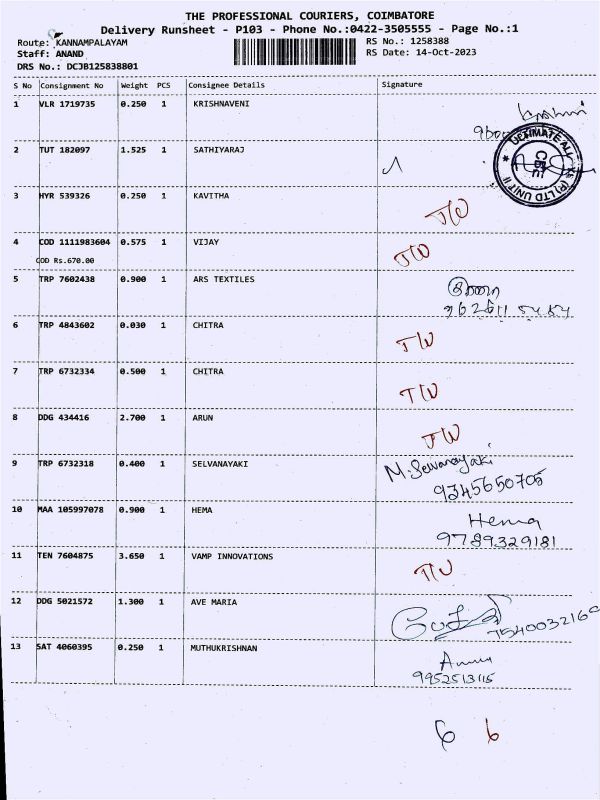 THE PROFESSIONAL COURIERS, COIMBATORE
Delivery Runsheet - P103 - Phone No.:0422-3505555 - Page No.:1
Route: KANNAMPALAYAM RS No.: 1258388
Staff: ANAND RS Date: 14-Oct-2023
DRS No.: DCJB125838801
S No Consignment No Weight PCS Consignee Details Signature
1 VLR 1719735 0.250 1 KRISHNAVENI
2 TUT 182097 1.525 1 SATHIYARAJ
3 HYR 539326 0.250 1 KAVITHA
4 COD 1111983604 0.575 1 VIJAY
COD Rs.670.00
5 TRP 7602438 0.900 1 ARS TEXTILES
6 TRP 4843602 0.030 1 CHITRA
7 TRP 6732334 0.500 1 CHITRA
8 DDG 434416 2.700 1 ARUN
9 TRP 6732318 0.400 1 SELVANAYAKI M.Selvanayaki
9345650705
10 MAA 105997078 0.900 1 HEMA Hema
9789329181
11 TEN 7604875 3.650 1 VAMP INNOVATIONS
12 DDG 5021572 1.300 1 AVE MARIA
7540032160
13 SAT 4060395 0.250 1 MUTHUKRISHNAN
9952513115
6 6